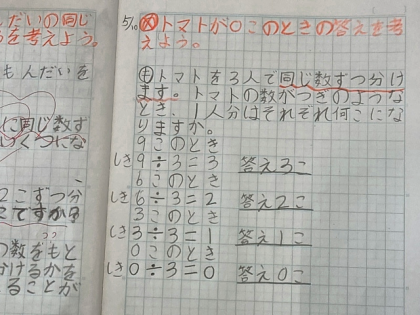 だいの同じ
を考えよう。
もんだいを
に同じ数ず
くつにな
2こずつ分
ですか?
つ数をもと
かけるかを
ることが
5/10 め トマトが0このときの答えを考
えよう。
も トマトを3人で同じ数ずつ分け
ます。トマトの数がつぎのような
とき、1人分はそれぞれ何こにな
りますか。
9このとき
しき 9÷3=3 答え3こ
6このとき
しき 6÷3=2 答え2こ
3このとき
しき 3÷3=1 答え1こ
0このとき
しき 0÷3=0 答え0こ